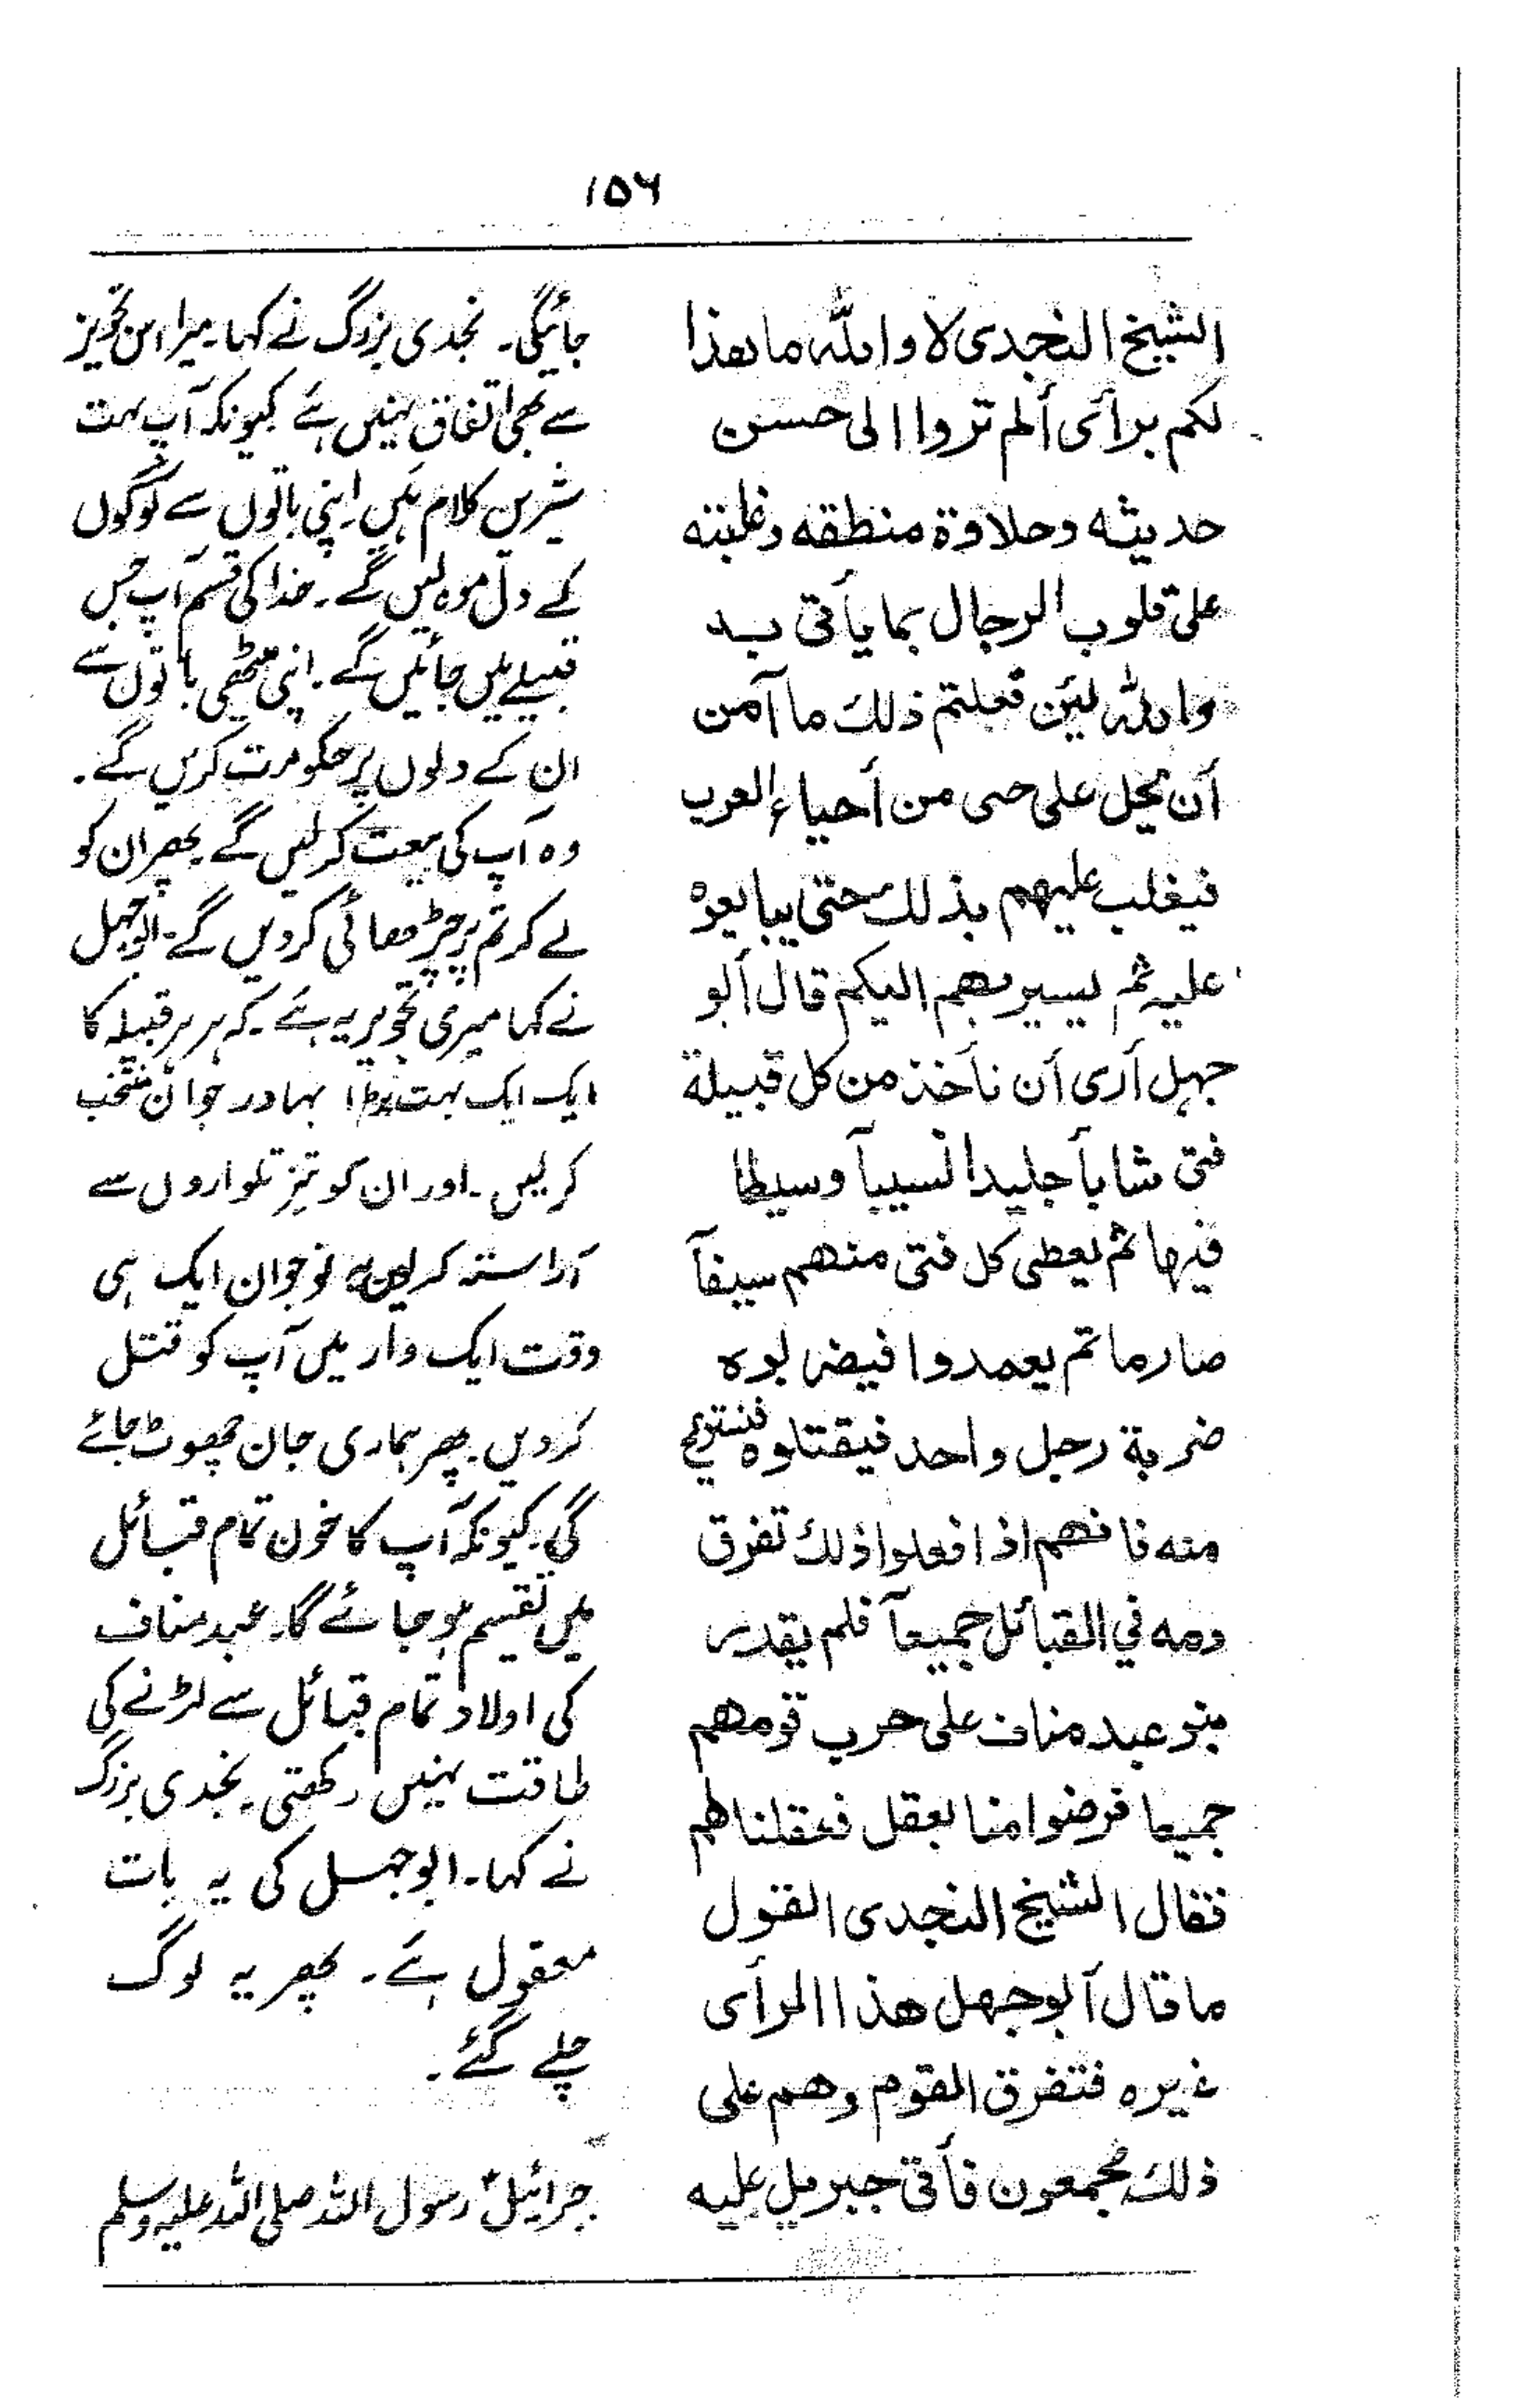 ۱۵۶
الشیخ النجدی لا واللہ ما ھذا
لکم برأی ألم تروا الی حسن
حدیثہ وحلاوة منطقہ وغلبتہ
علی قلوب الرجال بما یأتی بہ
واللہ لئن فعلتم ذلك ما آمن
أن یحل علی حی من أحیاء العرب
فیغلب علیھم بذلك حتی یبایعوہ
علیہ ثم یسیر بھم الیکم قال أبو
جہل أری أن نأخذ من کل قبیلة
فتی شاباً جلیدا نسیباً وسیطا
فیہا ثم یعطی کل فتی منھم سیفاً
صارما ثم یعمدوا فیضربوہ
ضربة رجل واحد فیقتلوہ فنستریح
منہ فانھم اذا فعلوا ذلك تفرق
دمہ في القبائل جمیعاً فلم یقدر
بنو عبد مناف علی حرب قومھم
جمیعا فرضوا منا بعقل فعقلنا لھم
فقال الشیخ النجدی القول
ما قال أبو جھل ھذا الرأی
غیرہ فتفرق القوم وھم علی
ذلك مجمعون فأتی جبریل علیہ
جائیگی۔ نجدی بزرگ نے کہا۔ میرا اس تجویز
سے بھی اتفاق نہیں ہے کیونکہ آپ بہت
شیریں کلام ہیں اپنی باتوں سے لوگوں
کے دل موہ لیں گے۔ خدا کی قسم آپ جس
قبیلے میں جائیں گے۔ اپنی میٹھی باتوں سے
ان کے دلوں پر حکومت کریں گے۔
وہ آپ کی بیعت کرلیں گے۔ پھر ان کو
لے کر تم پر چڑھائی کردیں گے۔ ابوجہل
نے کہا میری تجویز یہ ہے۔ کہ ہر ہر قبیلہ کا
ایک ایک بہت بڑا بہادر جوان منتخب
کرلیں۔ اور ان کو تیز تلواروں سے
آراستہ کرلیں۔ یہ نوجوان ایک ہی
وقت ایک وار میں آپ کو قتل
کردیں۔ پھر ہماری جان چھوٹ جائے
گی۔ کیونکہ آپ کا خون تمام قبائل
میں تقسیم ہو جائے گا۔ عبد مناف
کی اولاد تمام قبائل سے لڑنے کی
طاقت نہیں رکھتی۔ نجدی بزرگ
نے کہا۔ ابوجہل کی یہ بات
معقول ہے۔ پھر یہ لوگ
چلے گئے۔
جبرائیلؑ رسول اللہ صلی اللہ علیہ وسلم